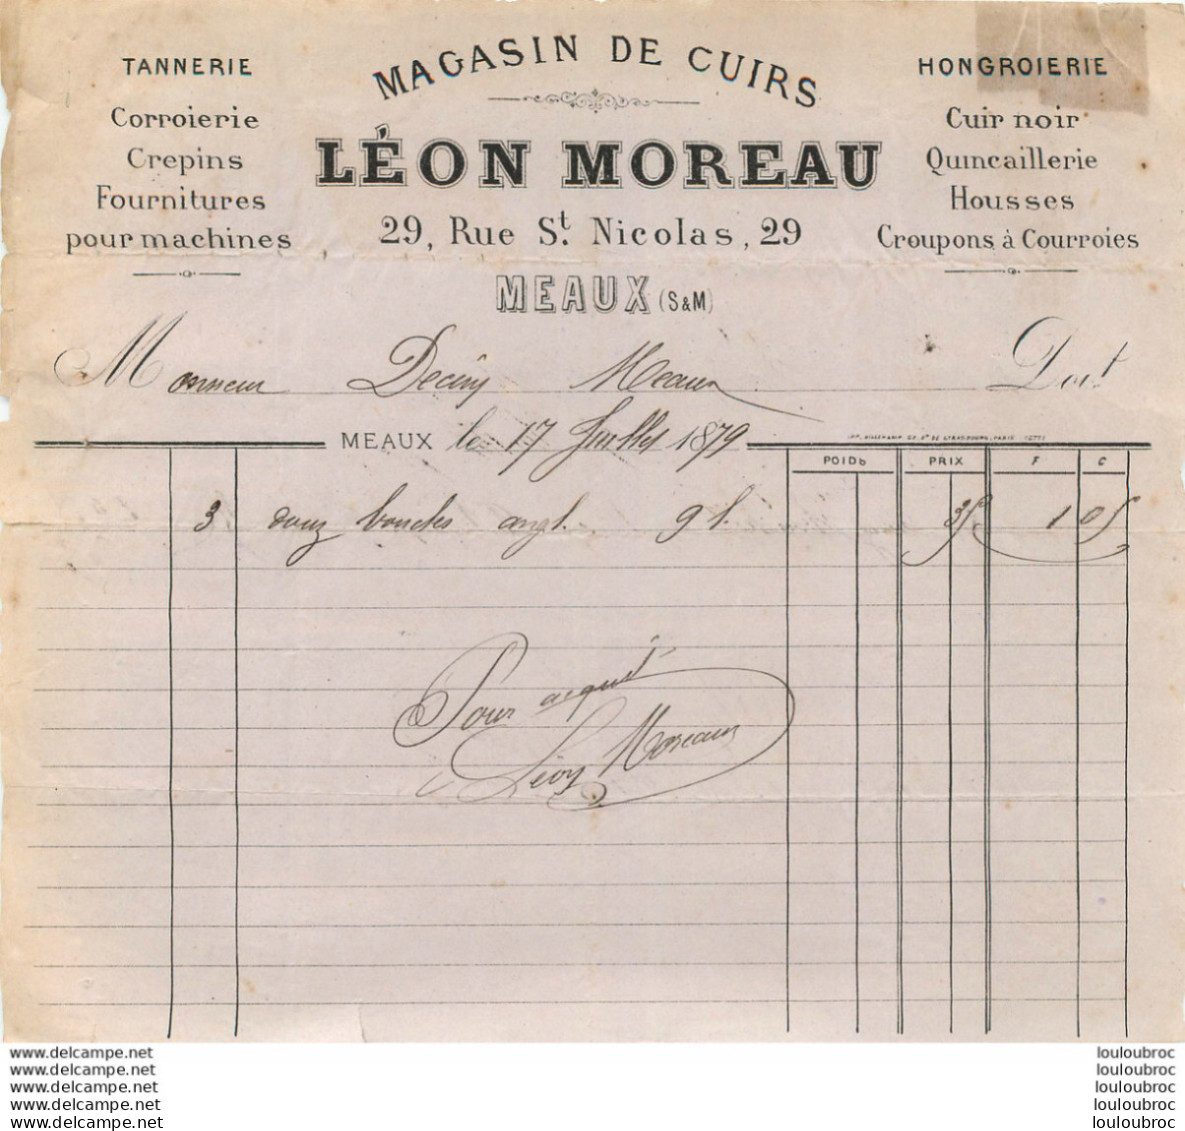 MAGASIN DE CUIRS
TANNERIE
Corroierie
Crepins
Fournitures
pour machines
LÉON MOREAU
29, Rue St. Nicolas, 29
MEAUX (S&M)
HONGROIERIE
Cuir noir
Quincaillerie
Housses
Croupons à Courroies
Monsieur Meaux Doit
MEAUX le 17 Juillet 1879
POIDS PRIX F C
3 douz boucles angl. 9 l. 35 1 05
Pour acquit
Léon Moreau
www.delcampe.net
www.delcampe.net
www.delcampe.net
www.delcampe.net
www.delcampe.net
louloubroc
louloubroc
louloubroc
louloubroc
louloubroc